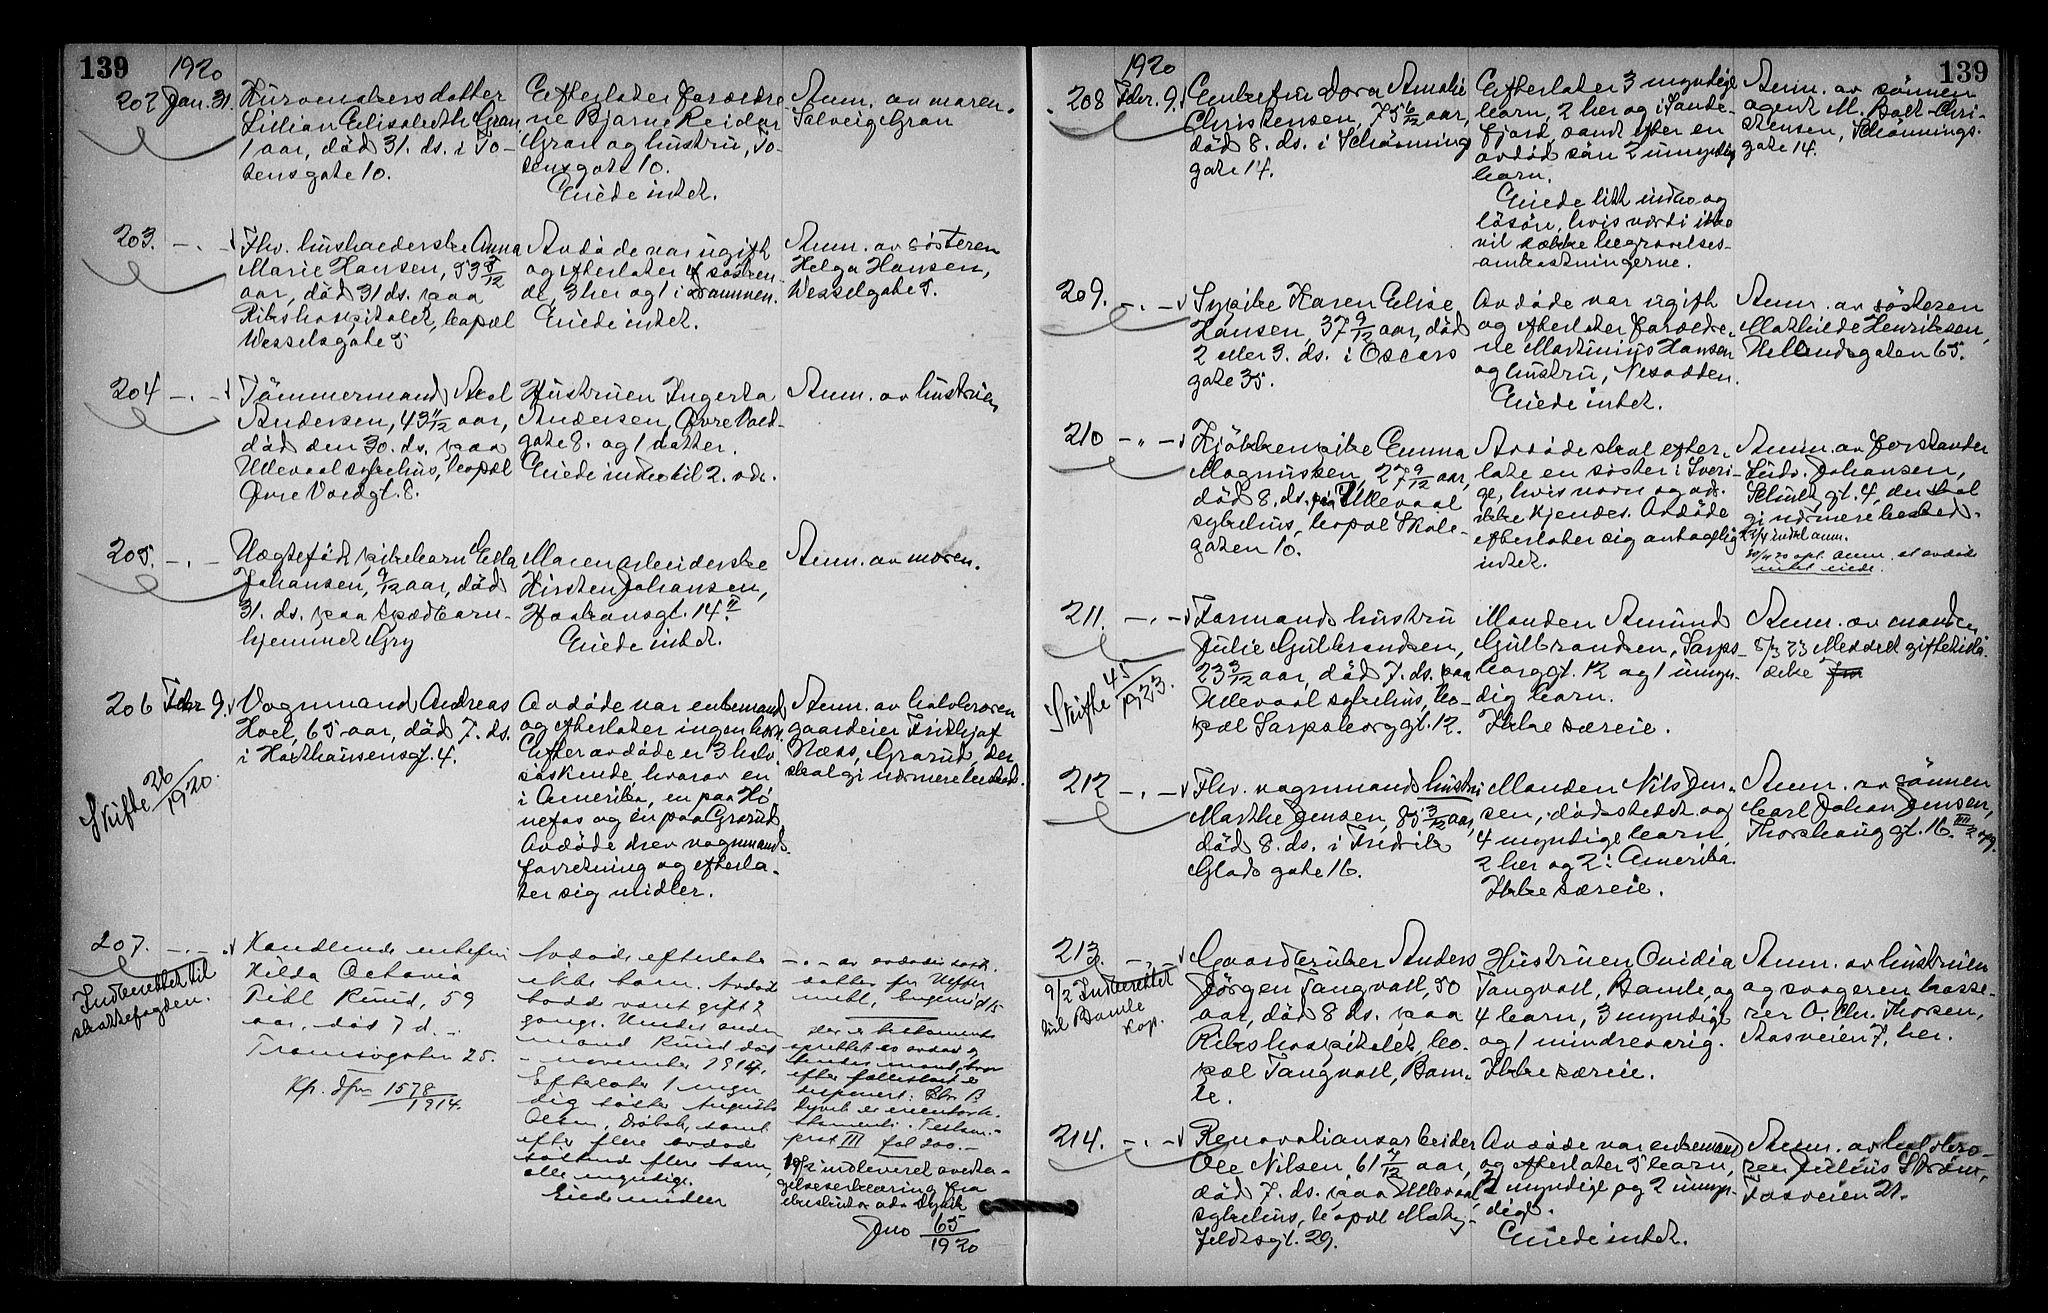 139
1920
202 Jan. 31.
Kurvmakersdatter
Lillian Elisabeth Gran
1 aar, död 31. ds. i To-
tensgate 10.
Efterlater foræeldre
ne Bjarne Reidar
Gran og hustru, To-
tensgate 10.
Eiede intet.
Anm. av moren.
Solveig Gran
203. -.-
Fhv. husholderske Anna
Marie Hansen, 53
aar, död 31 ds. paa
Rikshospitalet, bopæl
Wesselsgate 5
Avdöde var ugift
og efterlater 4 søsken-
de, 3 her og 1 i Drammen.
Eiede intet.
Anm. av søsteren
Helga Hansen,
Wesselsgate 5.
204 -.-
Tömmermand Axel
Andersen, 43 11/12 aar,
död den 30. ds. paa
Ullevaal sykehus, bopæl
Øvre Voldgt. 8.
Hustruen Ingerta
Andersen, Øvre Vold-
gate 8. og 1 datter.
Eiede indbo til 2. vdr.
Anm. av hustruen
205. -.-
Uægtefödt pikebarn Ella
Johansen, 7/12 aar, död
31. ds. paa spædbarn-
hjemmet Gry
Moren arbeiderske
Kirsten Johansen,
Haakonsgt. 14 II
Eiede intet.
Anm. av moren.
206 Febr. 9.
Vognmand Andreas
Hoel, 65 aar, död 7. ds.
i Haxthausensgt. 4.
Skifte 26/1920.
Avdöde var enkemand
og efterlater ingen barn.
Efter avdöde er 3 halv
söskende, hvorav en
i Amerika, en paa Hö
nefos og en paa Grorud.
Avdöde drev vognmands-
forretning og efterla-
ter sig midler.
Anm. av halvbroren
gaardeier Fridtjof
Næss, Grorud, der
skal gi nærmere beskud.
207. -.-
Indberettet til
skattefogden.
Handlende enkefru
Hilda Octavia
Pihl Ruud, 59
aar, död 7 d.
Tromsøgaten 25.
Kfr. Jfr 1578/1914.
Avdöde efterlater
ikke barn. Avdöde
hadde været gift 2
gange. Hendes anden
mand Ruud död
- november 1914.
Efterlater 1 myn
dig søster Augusta
Olsen, Dröbak, samt
efter flere avdöde
søskend flere barn,
alle myndige.
Eiede midler
-.- av avdødes søst.
datter fru
Der er testamente
oprettet av avdöde og
hendes mand, hvor
efter fællesboet er
disponert.
Testam.-
prot III fol 200.-
19/2 indleveret overta-
gelseserklæring fra
Jno 65/1920
139
1920
208 Febr. 9.
Enkefru Dora Amalie
Christensen, 75 6/12 aar,
död 8. ds. i Schønning
gate 14.
Efterlater 3 myndige
barn, 2 her og i Sande-
fjord, samt efter en
avdöd sön 2 umyndig
barn.
Eiede litt indbo og
lösöre, hvis værdi ikke
vil dække begravelses-
omkostningerne.
Anm. av sönnen
agent M. Bolt Chri-
stensen, Schønnings-
gate 14.
209. -.-
Sypike Karen Elise
Hansen, 37 9/12 aar, död
2 eller 3. ds. i Oscars
gate 35.
Avdöde var ugift
og efterlater forældre-
ne Martinius Hansen
og hustru, Nesodden.
Eiede intet.
Anm. av søsteren
Mathilde Henriksen,
Uelandsgaten 65.
210 -.-
Kjökkenpike Emma
Magnussen, 27 9/12 aar,
död 8. ds. paa Ullevaal
sykehus, bopæl Skole-
gaten 10.
Avdöde skal efter-
late en søster i Sveri-
ge, hvis navn og adr.
ikke kjendes. Avdöde
efterlater sig antagelig
intet.
Anm. av forstander
Ludv. Johansen,
Schultzgt. 4, der skal
gi nærmere besked.
avdöde
intet eiede.
211. -.-
Skifte 45/1923.
Formands hustru
Julie Gulbrandsen,
23 3/12 aar, död 7. ds. paa
Ullevaal sykehus, bo-
pæl Sarpsborggt. 12.
Manden Amund
Gulbrandsen, Sarps-
borggt. 12 og 1 umyn-
dig barn.
Ikke særeie.
Anm. av manden
5/3 23 Meddelt giftetilla-
delse
212 -.-
Fhv. vognmands hustru
Marthe Jensen, 85 3/12 aar,
död 8. ds. i Fredrik
Glads gate 16.
Manden Nils Jen-
sen, dödsstedet og
4 myndige barn,
2 her og 2 i Amerika.
Ikke særeie.
Anm. av sönnen
Carl Johan Jensen,
Thorshauggt. 16. III
213. -.-
9/2 Indberettet
til Bamle
Gaardbruker Anders
Jörgen Tangvall, 50
aar, död 8 ds. paa
Rikshospitalet, bo-
pæl Tangvall, Bam-
le.
Hustruen Ovidia
Tangvall, Bamle, og
4 barn, 3 myndige
og 1 mindreaarig.
Ikke særeie.
Anm. av hustruen
og svogeren kasse-
rer O. Chr. Thorsen,
Aasveien 7, her.
214. -.-
Renovationsarbeider
Ole Nilsen 61 4/12 aar,
död 7. ds. paa Ullevaal
sykehus, bopæl Møtz-
feldtsgt. 29.
Avdöde var enkemand
og efterlater 5 barn,
myndige og 2 umyn-
dige.
Eiede intet.
Anm. av halvbro-
ren Julius Ström,
Fosveien 21.